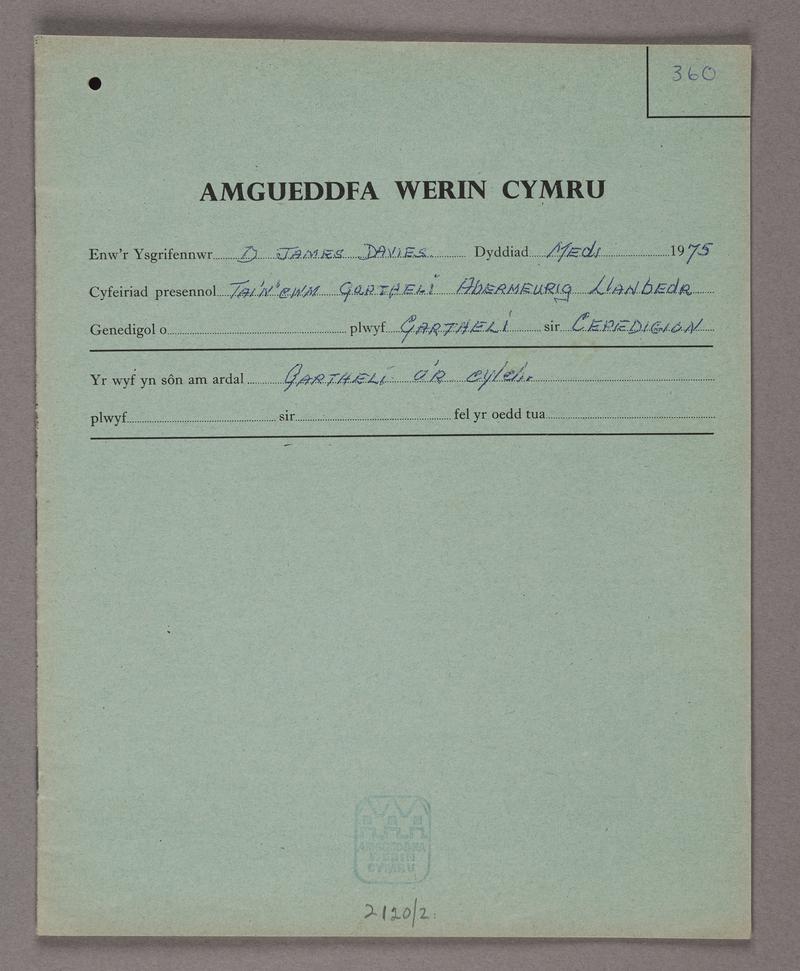 360
AMGUEDDFA WERIN CYMRU
Enw'r Ysgrifennwr D JAMES DAVIES. Dyddiad Medi 1975
Cyfeiriad presennol TAI'N'CWM GARTHELI ABERMEURIG LLANBEDR
Genedigol o plwyf GARTHELI sir CEREDIGION
Yr wyf yn sôn am ardal GARTHELI A'R cylch.
plwyf sir fel yr oedd tua
AMGUEDDFA
WERIN
CYMRU
2120/2